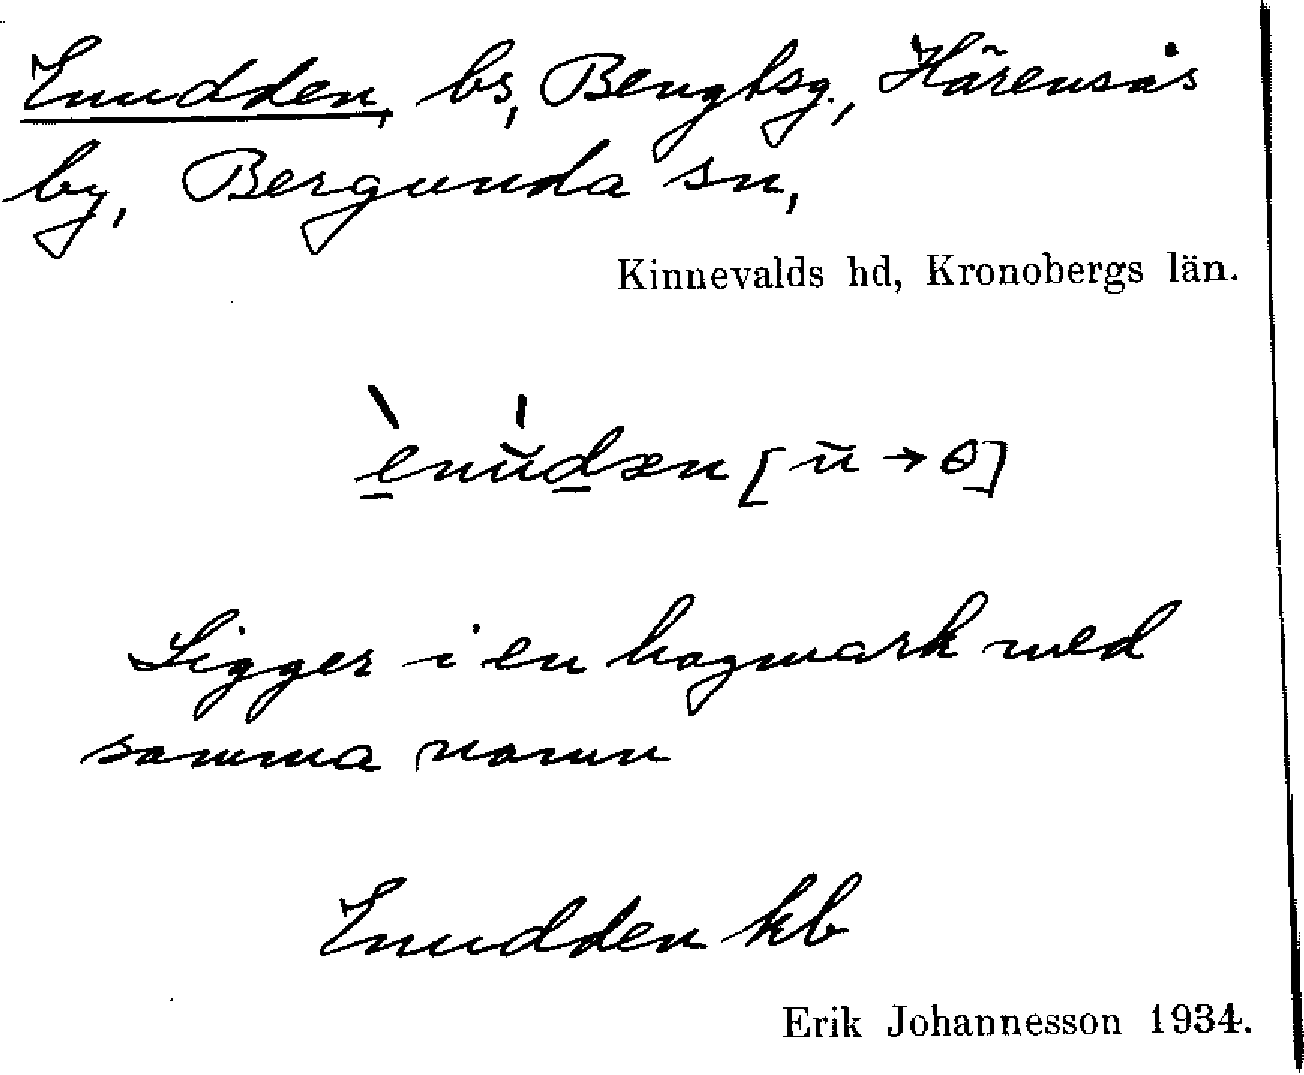 Enudden, bs, Bengtsg., Härensås
by, Bergunda sn,
Kinnevalds hd, Kronobergs län.
ènŭ́dən [ŭ → ɵ]
Ligger i en hagmark med
samma namn
Enudden kb
Erik Johannesson 1934.